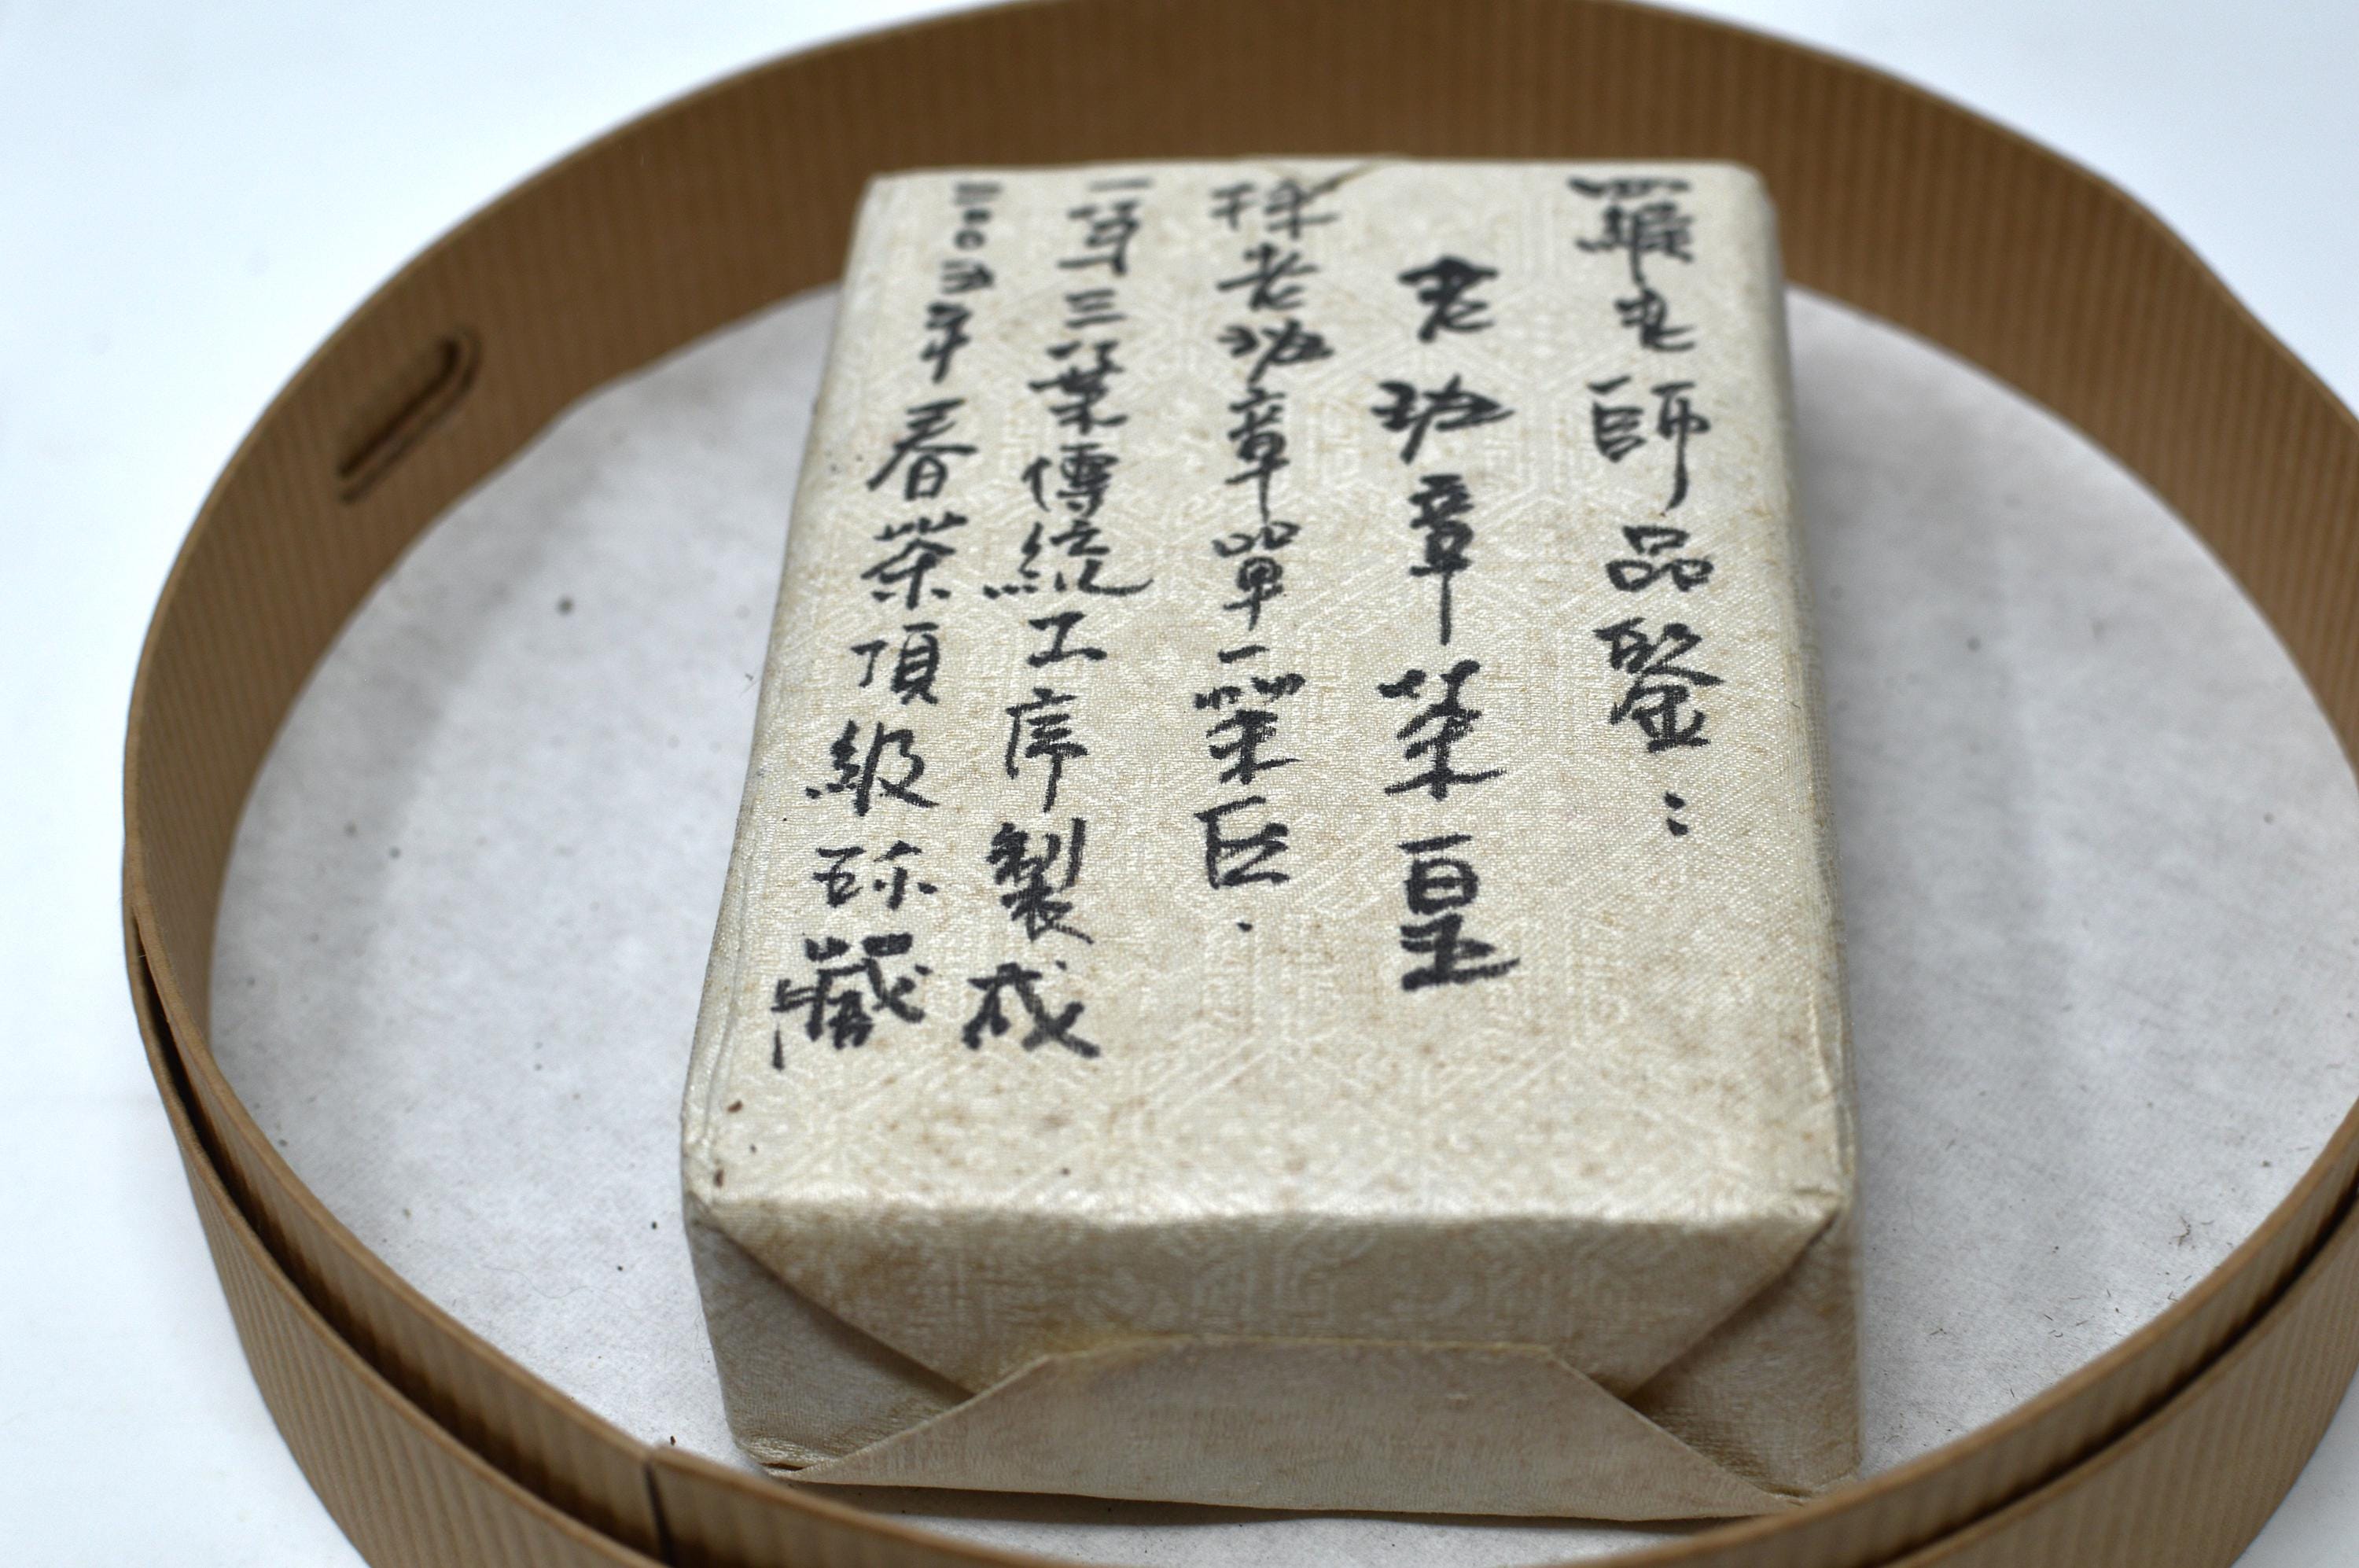 羅老師品鑒：
老班章茶皇
採老班章單一
一芽三葉傳統工序製成
二00五年春茶頂級珍藏